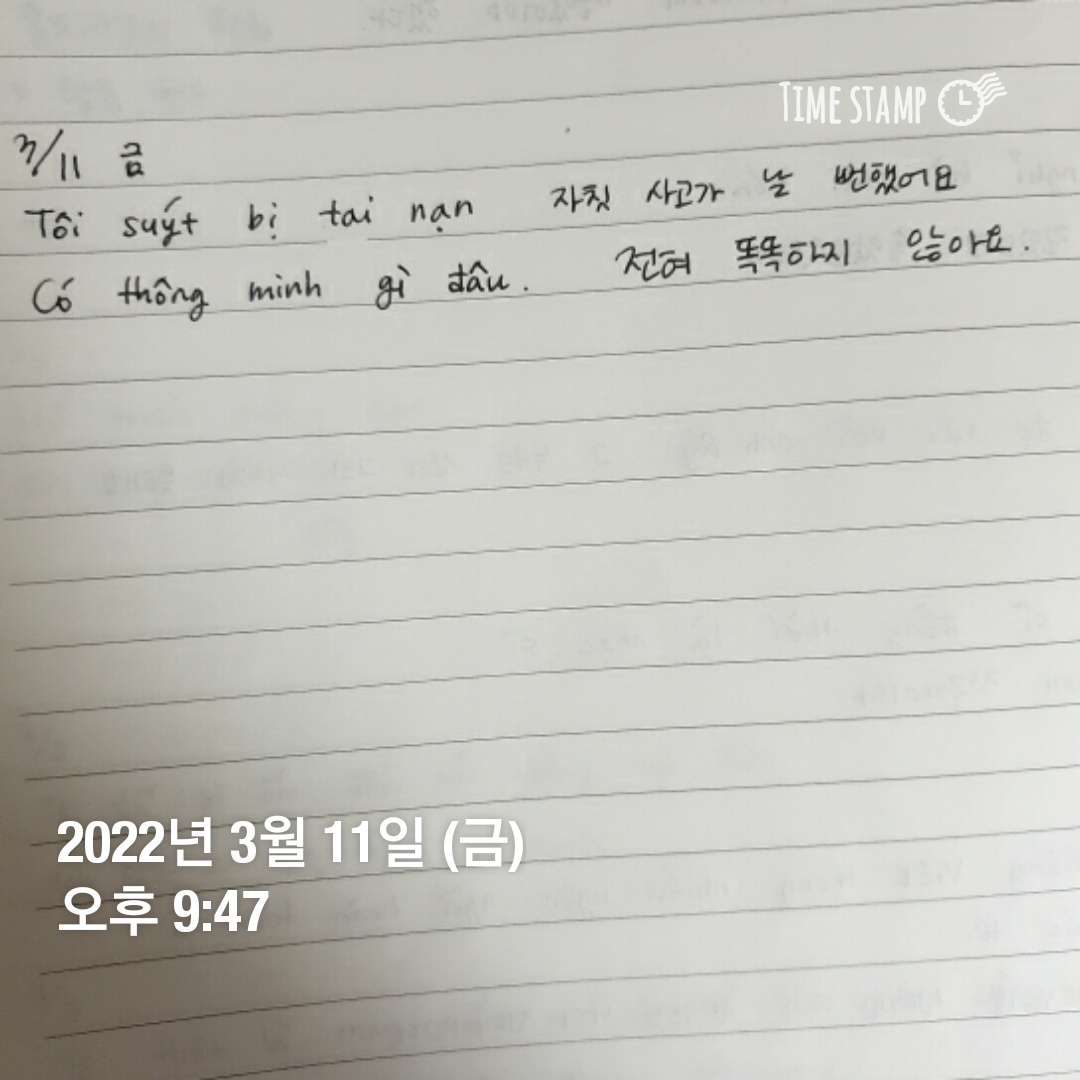 TIME STAMP
3/11 금
Tôi suýt bị tai nạn 자칫 사고가 날 뻔했어요
Có thông minh gì đâu. 전혀 똑똑하지 않아요.
2022년 3월 11일 (금)
오후 9:47